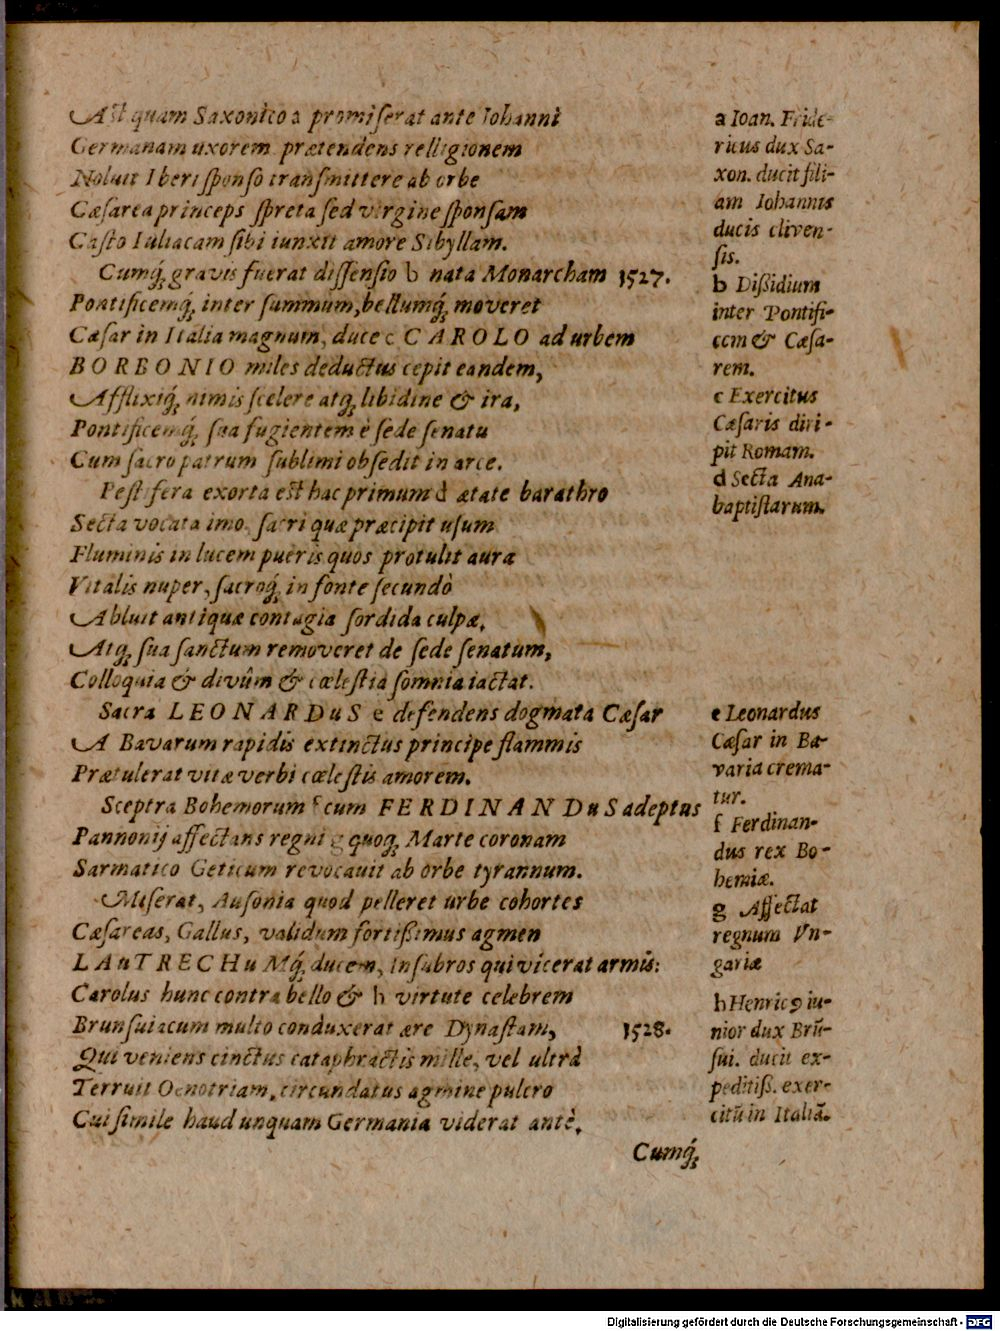 Ast quam Saxonico a promiserat ante Iohanni
Germanam uxorem prætendens relligionem
Noluit Iberi sponso transmittere ab orbe
Cæsarea princeps spreta sed virgine sponsam
Casto Iuliacam sibi iunxit amore Sibyllam.
Cumq́ꝫ gravis fuerat dissensio b nata Monarcham 1527.
Pontificemq́ꝫ inter summum, bellumq́ꝫ moveret
Cæsar in Italia magnum, duce c CAROLO ad urbem
BORBONIO miles deductus cepit eandem,
Afflixiq́ꝫ nimis scelere atqꝫ libidine & ira,
Pontificemq́ꝫ sua fugientem è sede senatu
Cum sacro patrum sublimi obsedit in arce.
Pestifera exorta est hac primum d ætate barathro
Secta vocata imo, sacri quæ præcipit usum
Fluminis in lucem pueris quos protulit aura
Vitalis nuper, sacroq́ꝫ in fonte secundò
Abluit antiquæ contagia sordida culpæ,
Atqꝫ sua sanctum removeret de sede senatum,
Colloquia & divûm & cœlestia somnia iactat.
Sacra LEONARDuS e defendens dogmata Cæsar
A Bavarum rapidis extinctus principe flammis
Prætulerat vitæ verbi cœlestis amorem.
Sceptra Bohemorum f cum FERDINANDuS adeptus
Pannonij affectans regni g quoqꝫ Marte coronam
Sarmatico Geticum revocauit ab orbe tyrannum.
Miserat, Ausonia quod pelleret urbe cohortes
Cæsareas, Gallus, validum fortißimus agmen
LAuTRECHuMq́ꝫ ducem, Insubros qui vicerat armis:
Carolus hunc contra bello & h virtute celebrem
Brunsuiacum multo conduxerat ære Dynastam, 1528.
Qui veniens cinctus cataphractis mille, vel ultrà
Terruit Oenotriam, circundatus agmine pulcro
Cui simile haud unquam Germania viderat antè,
Cumq́ꝫ
a Ioan. Fride-
ricus dux Sa-
xon. ducit fili-
am Iohannis
ducis cliven-
sis.
b Dißidium
inter Pontifi-
cem & Cæsa-
rem.
c Exercitus
Cæsaris diri-
pit Romam.
d Secta Ana-
baptistarum.
e Leonardus
Cæsar in Ba-
varia crema-
tur.
f Ferdinan-
dus rex Bo-
hemiæ.
g Affectat
regnum Vn-
gariæ
h Henricꝰ iu-
nior dux Brũ-
sui. ducit ex-
peditiß. exer-
citũ in Italiã.
Digitalisierung gefördert durch die Deutsche Forschungsgemeinschaft - DFG